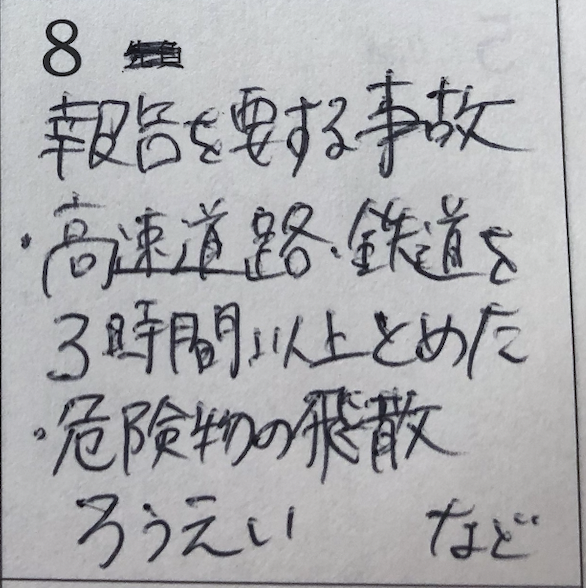 8
報告を要する事故
・高速道路・鉄道を
3時間以上とめた
・危険物の飛散
ろうえい など